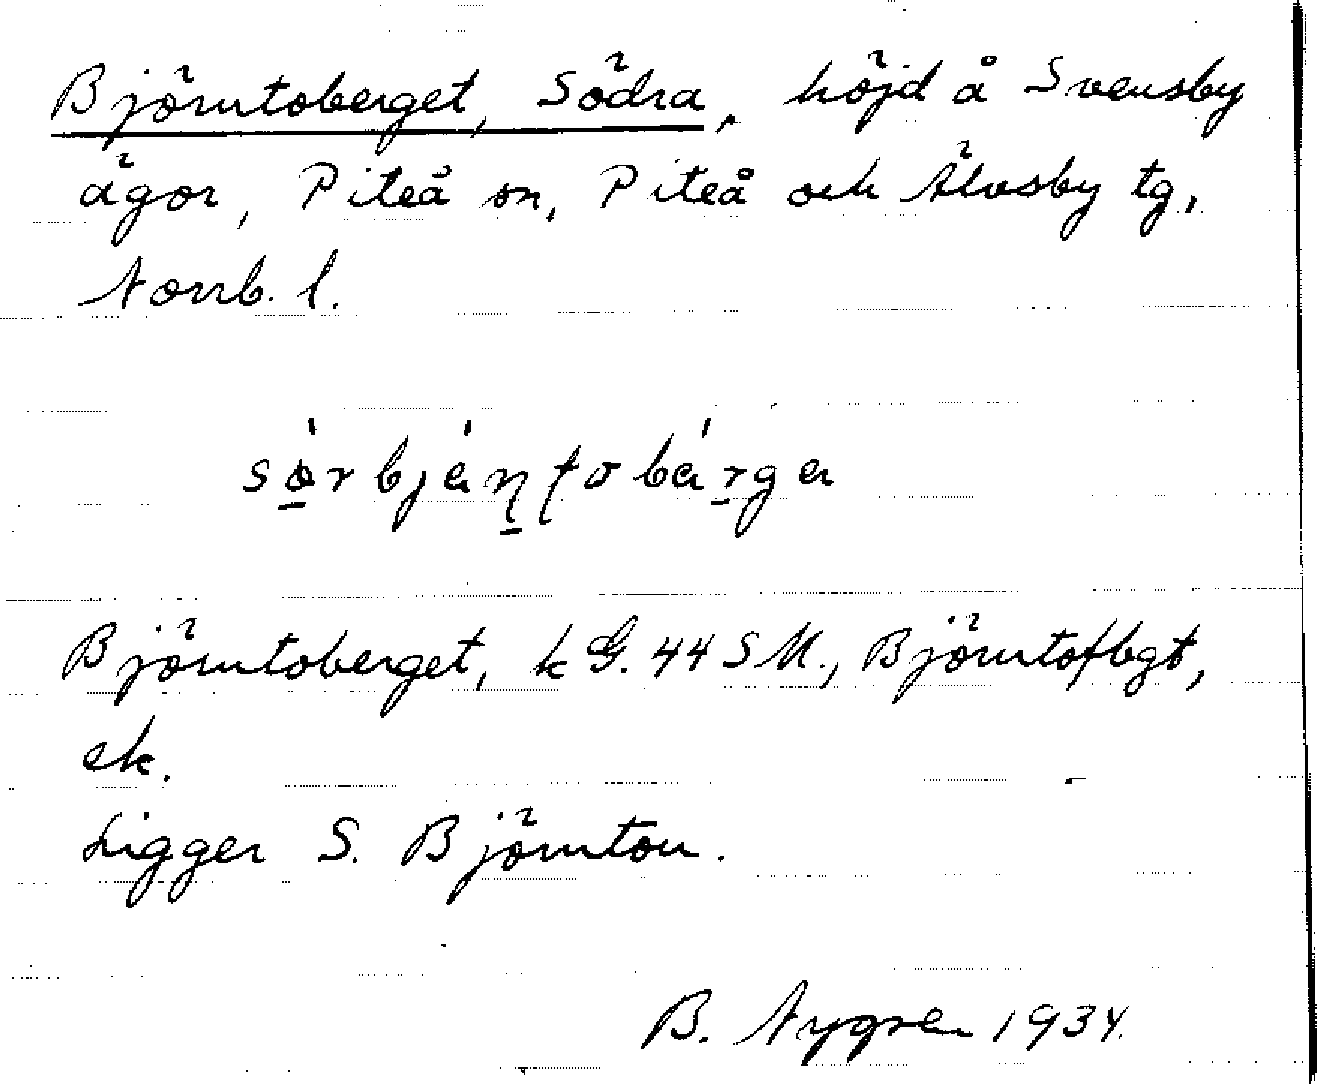 Björntoberget, Södra, höjd å Svensby
ägor, Piteå sn, Piteå och Älvsby tg,
Norrb. l.
sø̠̀rbjèṉʈobèṟgɐ
Björntoberget, k G. 44 SM., Björntofbgt,
ek.
Ligger S. Björnton.
B. Nygren 1934.